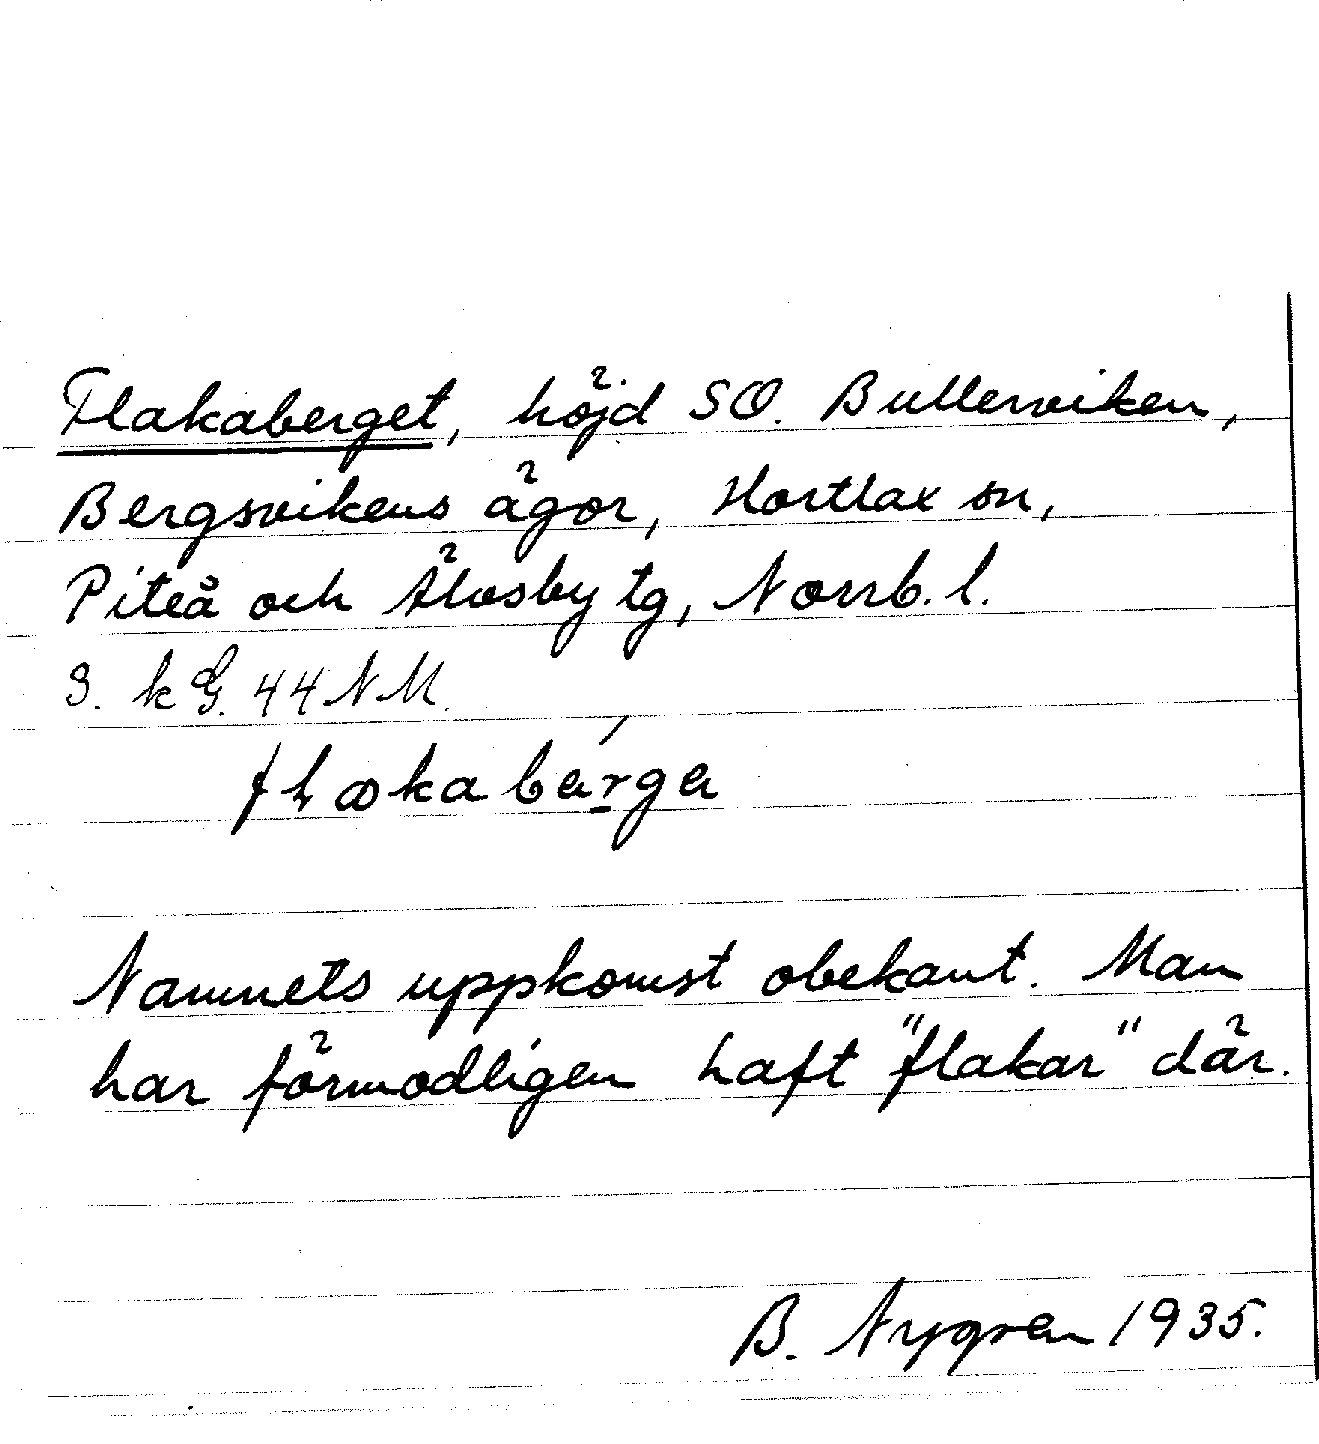 Flakaberget, höjd SO. Bullerviken,
Bergsvikens ägor, Hortlax sn,
Piteå och Älvsby tg, Norrb. l.
S. kG. 44 NM.
Namnets uppkomst obekant. Man
har förmodligen haft "flakar" där.
B. Nygren 1935.